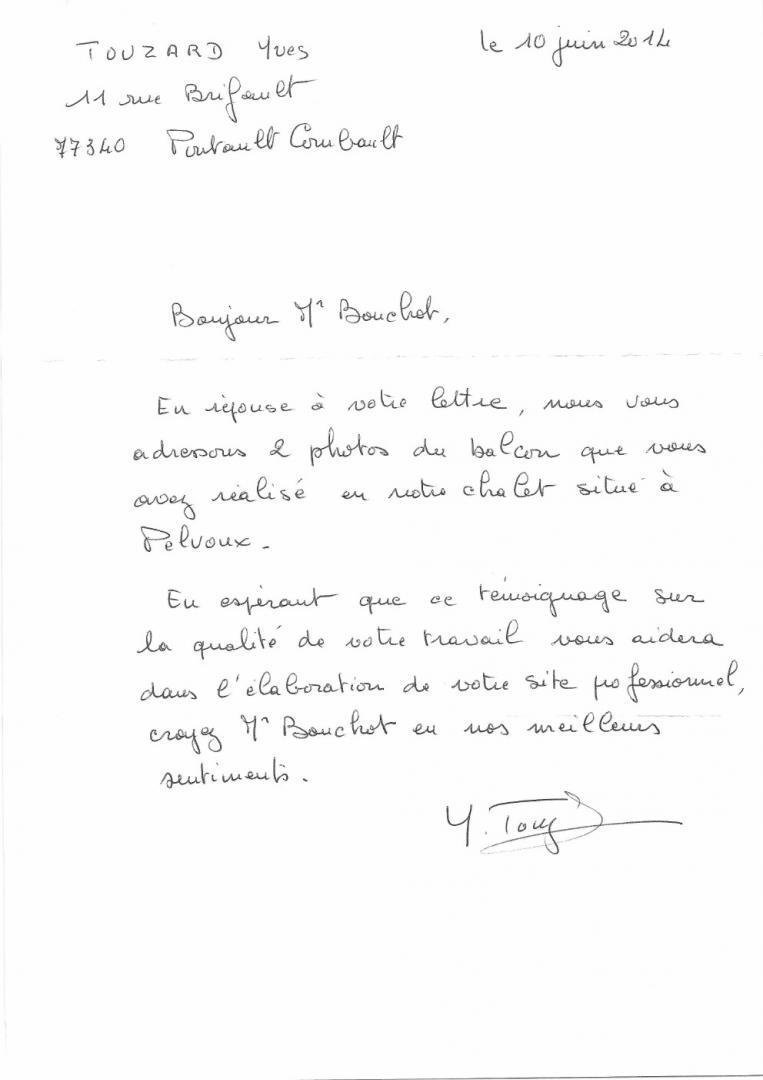 TOUZARD Yves
le 10 juin 2014
11 rue Brifault
77340 Pontault Combault
Bonjour Mr Bouchot,
En réponse à votre lettre, nous vous
adressons 2 photos du balcon que vous
avez réalisé en notre chalet situé à
Pelvoux.
En espérant que ce témoignage sur
la qualité de votre travail vous aidera
dans l'élaboration de votre site professionnel,
croyez Mr Bouchot en nos meilleurs
sentiments.
Y. Touz